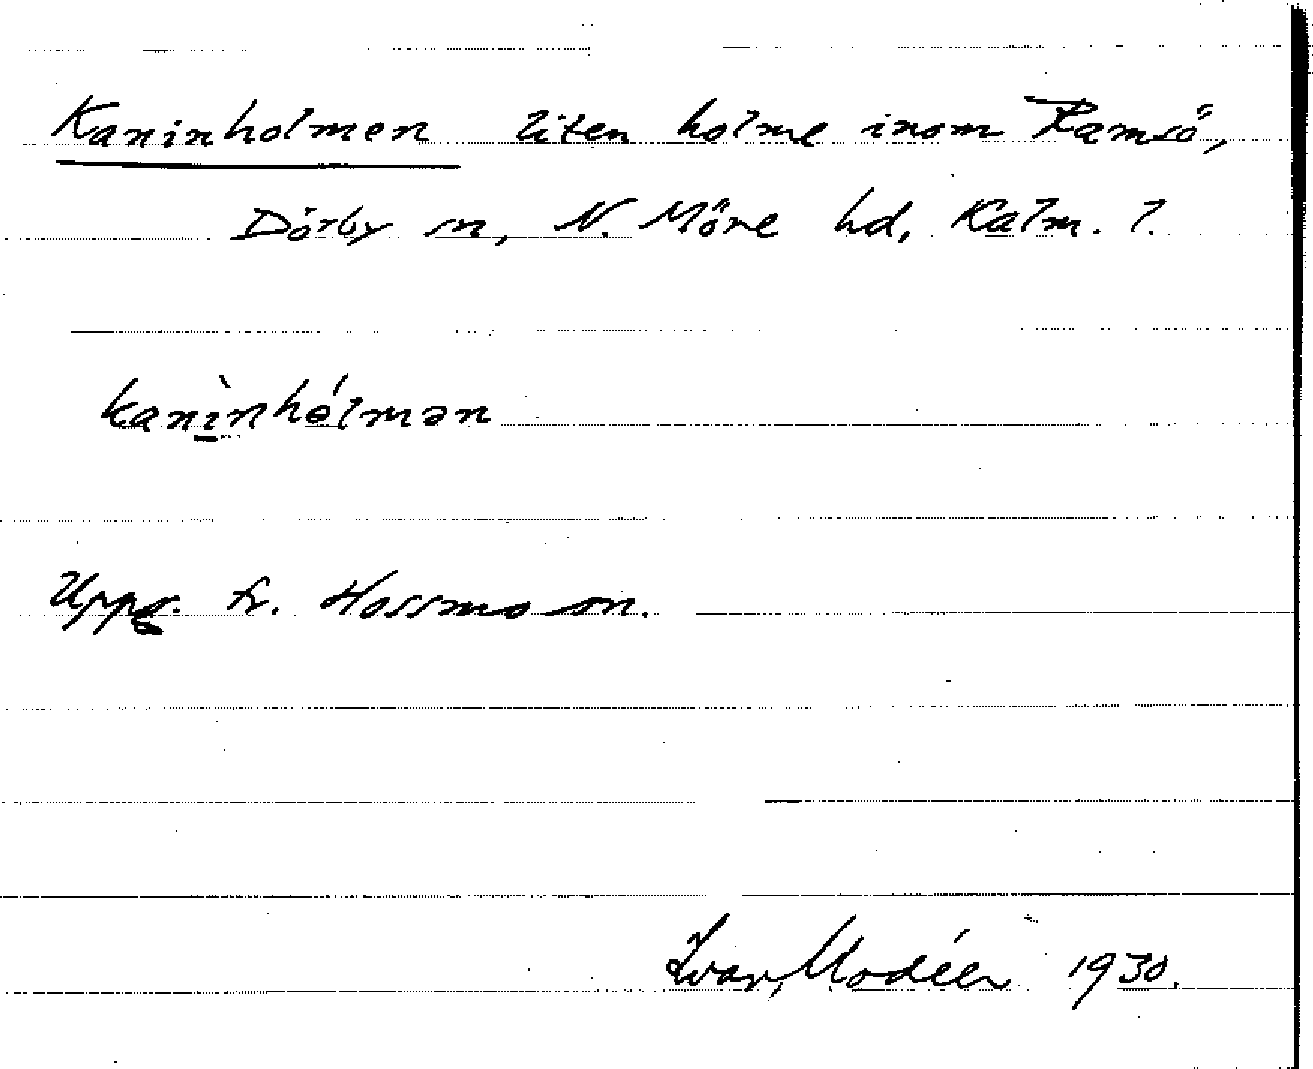 Kaninholmen liten holme inom Ramsö,
Dörby sn, N. Möre hd, Kalm. l.
kanì̱nhólmən
Uppg. fr. Hossmo sn.
Ivar Modéer 1930.